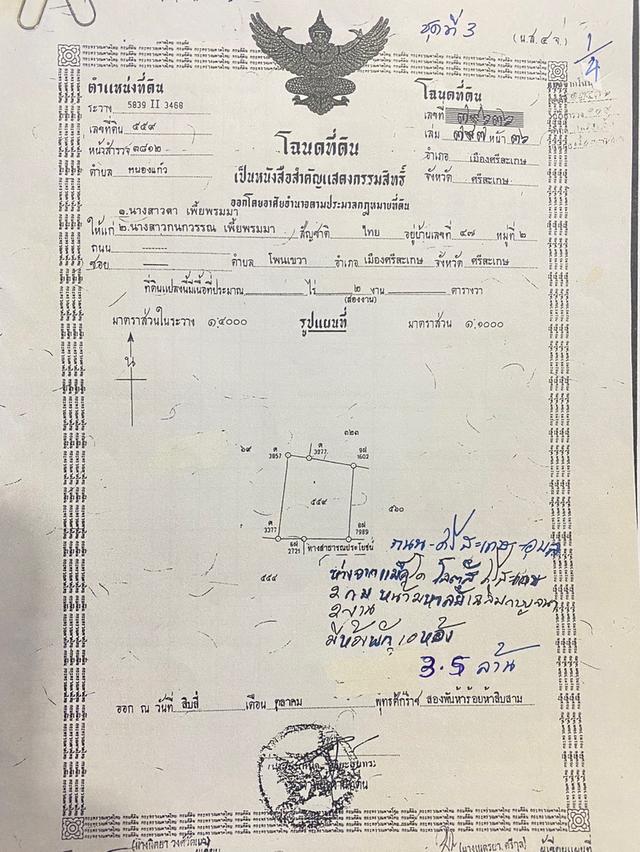 ชุดที่ 3
(น.ส.๔ จ.)
1/4
ตำแหน่งที่ดิน
ระวาง 5839 II 3468
เลขที่ดิน ๕๕๙
หน้าสำรวจ ๓๘๑๒
ตำบล หนองแก้ว
โฉนดที่ดิน
เลขที่
เล่ม ๓๙๗ หน้า ๓๖
อำเภอ เมืองศรีสะเกษ
จังหวัด ศรีสะเกษ
โฉนดที่ดิน
เป็นหนังสือสำคัญแสดงกรรมสิทธิ์
ออกโดยอาศัยอำนาจตามประมวลกฎหมายที่ดิน
๑.นางสาวดา เพี้ยพรมมา
ให้แก่ ๒.นางสาวกนกวรรณ เพี้ยพรมมา สัญชาติ ไทย อยู่บ้านเลขที่ ๔๗ หมู่ที่ ๒
ถนน
ซอย ตำบล โพนเขวา อำเภอ เมืองศรีสะเกษ จังหวัด ศรีสะเกษ
ที่ดินแปลงนี้มีเนื้อที่ประมาณ ไร่ ๒ งาน ตารางวา
(สองงาน)
มาตราส่วนในระวาง ๑:๔๐๐๐ รูปแผนที่ มาตราส่วน ๑:๑๐๐๐
น
๓๒๓
๖๙
ต 3957
ต 3977
อฝ 1602
๕๕๙
๕๖๐
ต 3377
อฝ 2721
อฝ 7989
ทางสาธารณประโยชน์
๕๕๕
ถนน-ศรีสะเกษ-อุบล
ห่างจากแม็คโค โลตัส ศรีสะเกษ
2 กม หน้ามหาลัยเฉลิมกาญจนา
2 งาน
มีห้องพัก 10 ห้อง
3.5 ล้าน
ออก ณ วันที่ สิบสี่ เดือน ตุลาคม พุทธศักราช สองพันห้าร้อยห้าสิบสาม